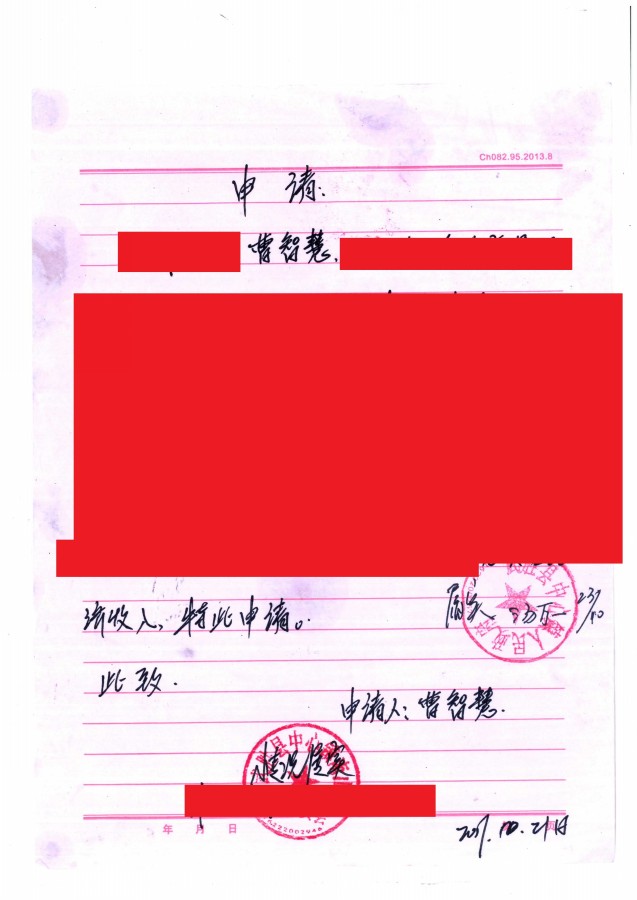 Ch082.95.2013.8
申请.
曹智慧,
济收入, 特此申请。
属实
23/10
此致.
申请人: 曹智慧.
县中心
情况属实
年 月 日
10.21日